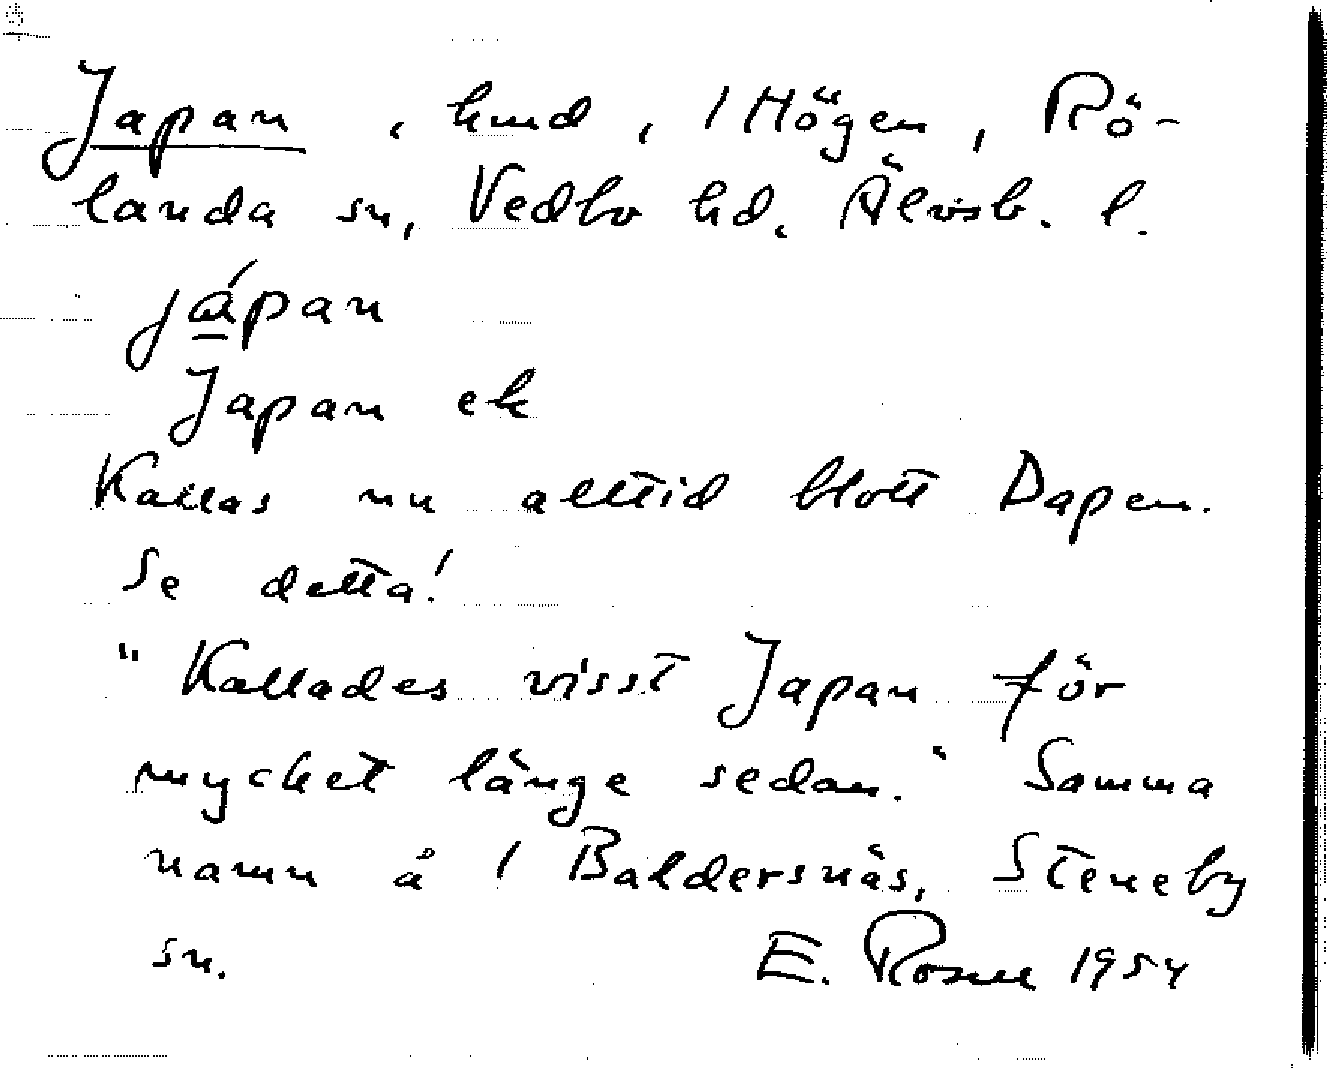 Japan, hmd, 1 Högen, Rö-
landa sn, Vedbo hd. Älvsb. l.
jápan
Japan ek
Kallas nu alltid blott Dapen.
Se detta!
"Kallades visst Japan för
mycket länge sedan." Samma
namn å 1 Baldersnäs, Steneby
sn. E. Rosell 1954